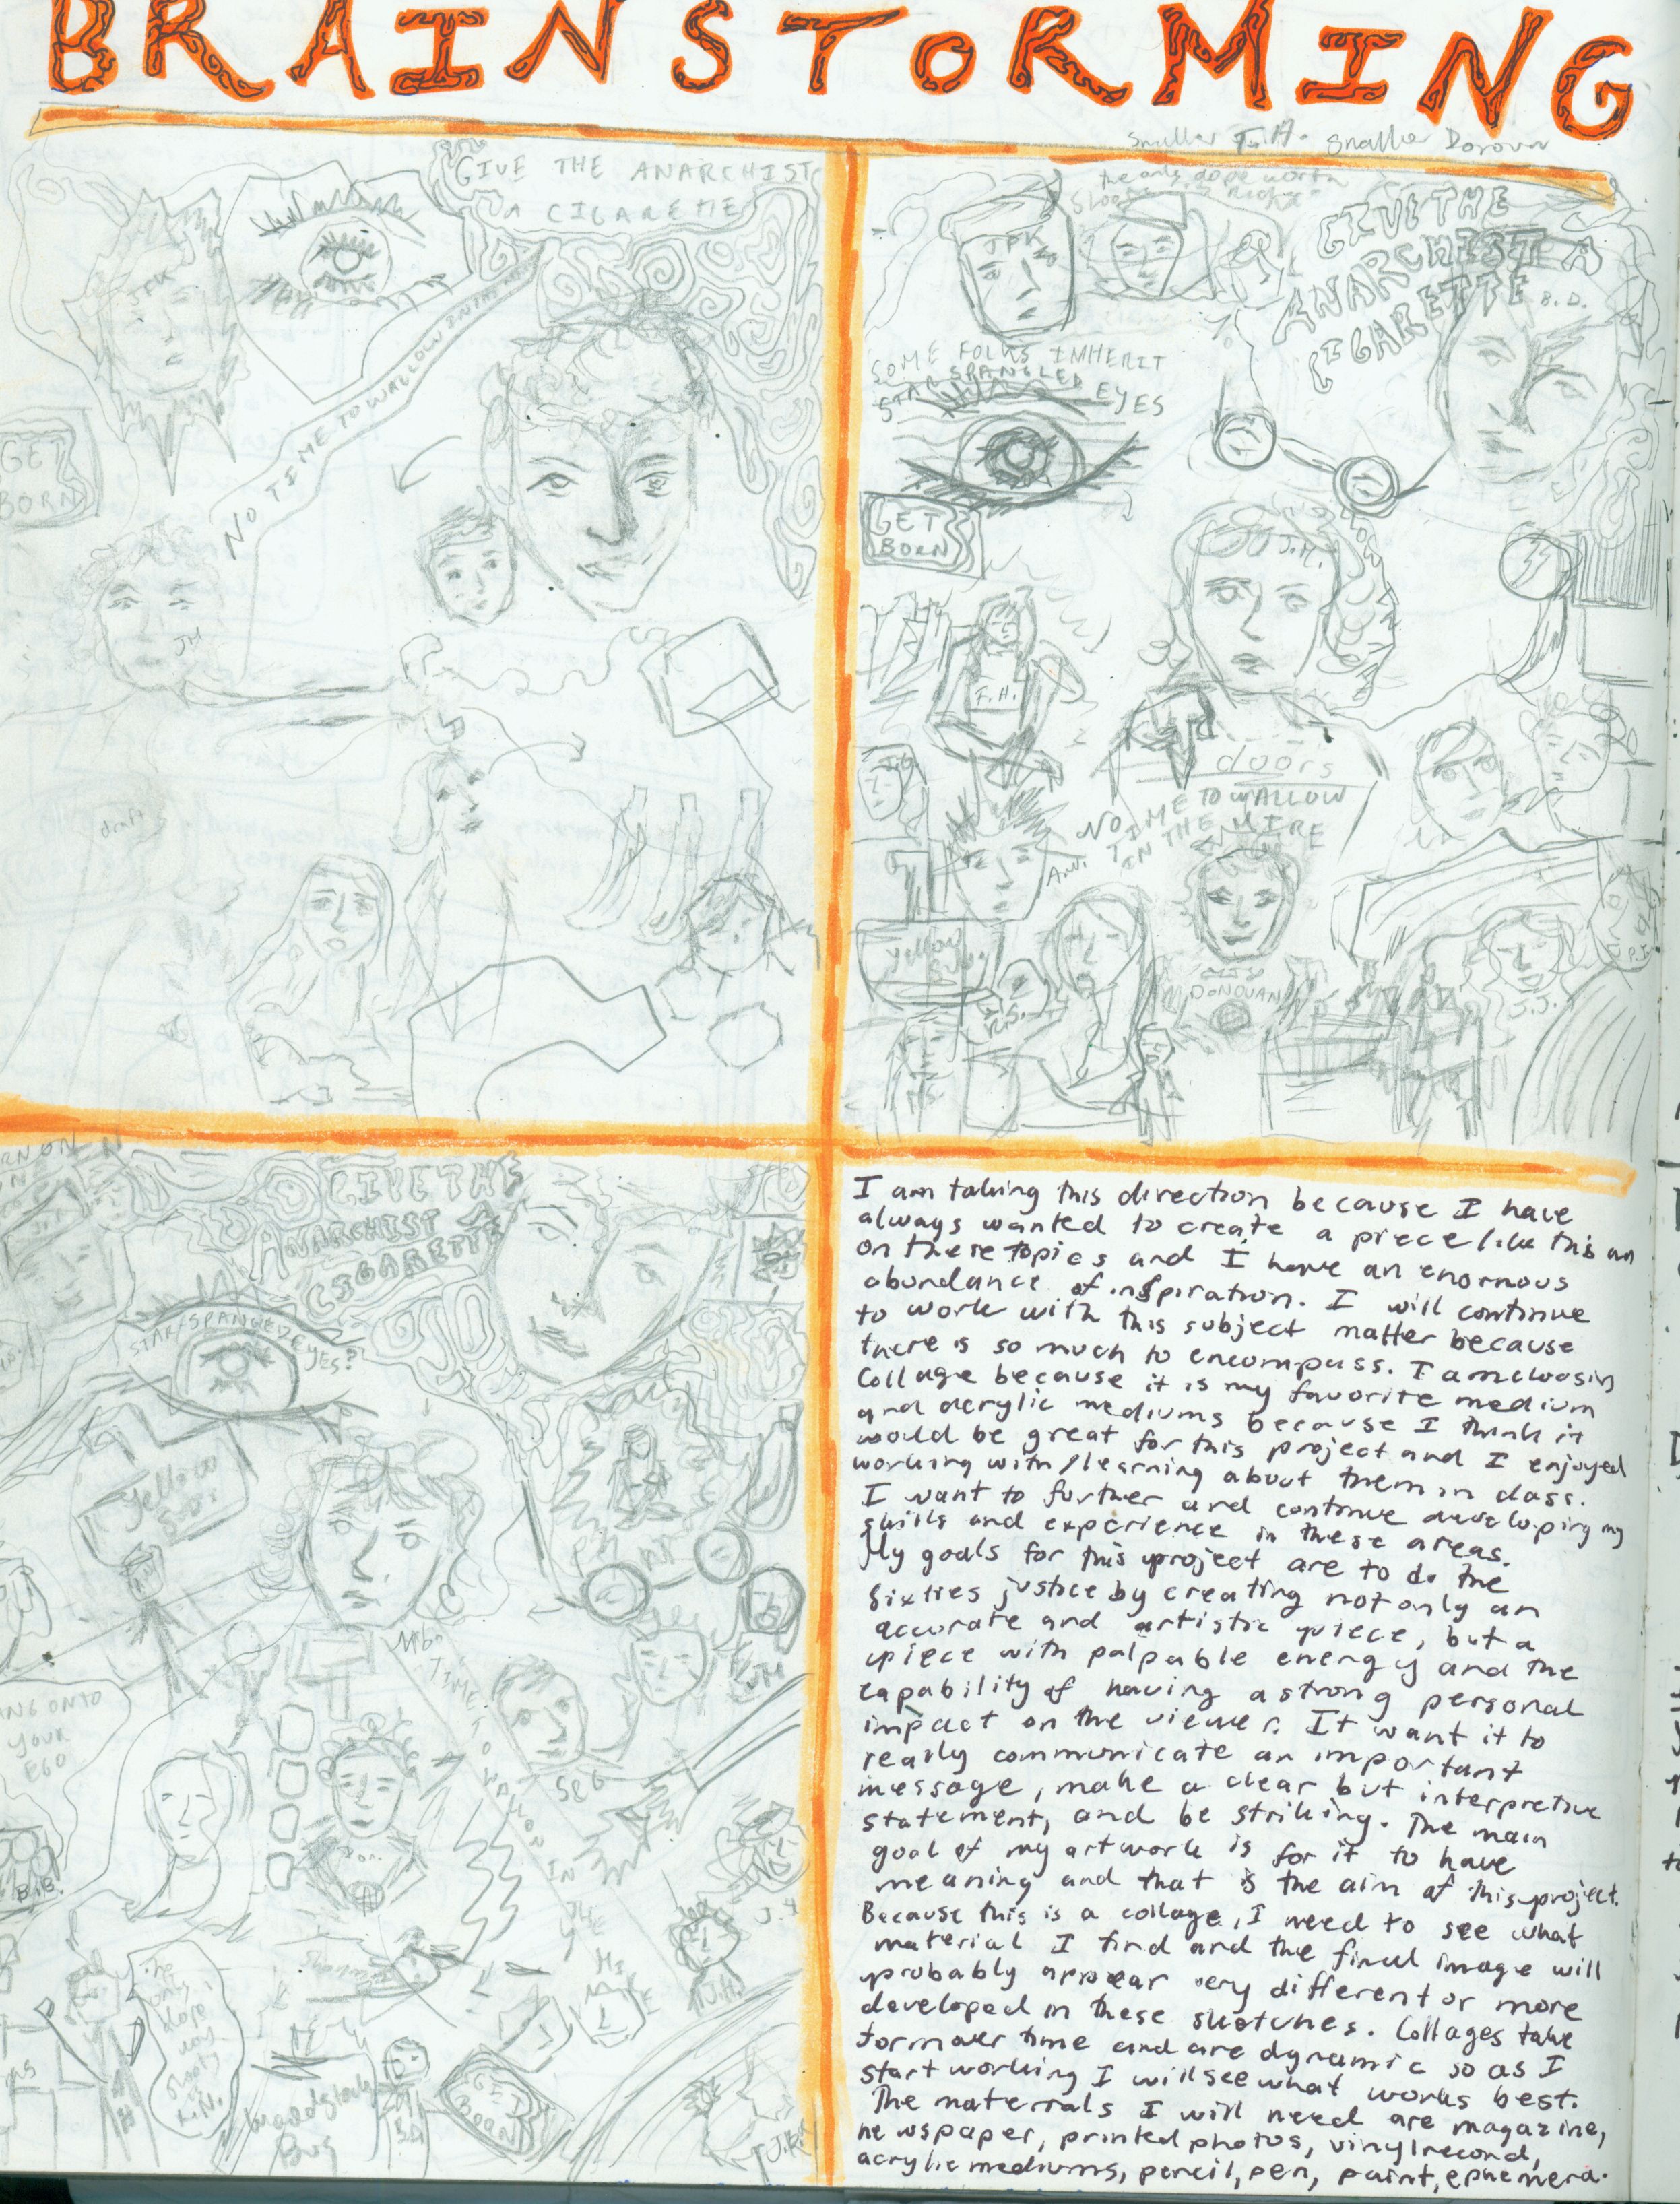 BRAINSTORMING
Smaller J.H. Smaller Donovan
GIVE THE ANARCHIST
A CIGARETTE
JFK
NO TIME TO WALLOW IN THE
GET
BORN
JM
draft
the only dope worth
shooting is
GIVE THE
ANARCHIST A
CIGARETTE
JFK
B.D.
SOME FOLKS INHERIT
STAR SPANGLED
EYES
GET
BORN
J.M.
F.H.
J.G.
doors
NO TIME TO WALLOW
IN THE MIRE
A.W.
yellow
Sub.
DONOVAN
R.S.
J.J.
P.J.
GIVE THE
ANARCHIST A
CIGARETTE
STAR SPANGLED
EYES?
Yellow
Sub.
NO
TIME TO WALLOW IN
THE
MIRE
JM
YOUR
EGO
B.B.
J.H.
the
only
dope
worth
shooting
is
R.N.
woodstock
Bug
GET
BORN
J.R.
I am taking this direction because I have
always wanted to create a piece like this on
on these topics and I have an enormous
abundance of inspiration. I will continue
to work with this subject matter because
there is so much to encompass. I am choosing
Collage because it is my favorite medium
and acrylic mediums because I think it
would be great for this project and I enjoyed
working with/learning about them in class.
I want to further and continue developing my
skills and experience in these areas.
My goals for this project are to do the
sixties justice by creating not only an
accurate and artistic piece, but a
piece with palpable energy and the
capability of having a strong personal
impact on the viewer. I want it to
really communicate an important
message, make a clear but interpretive
statement, and be striking. The main
goal of my artwork is for it to have
meaning and that is the aim of this project.
Because this is a collage, I need to see what
material I find and the final image will
probably appear very different or more
developed in these sketches. Collages take
form over time and are dynamic so as I
start working I will see what works best.
The materials I will need are magazine,
newspaper, printed photos, vinyl record,
acrylic mediums, pencil, pen, paint, ephemera.